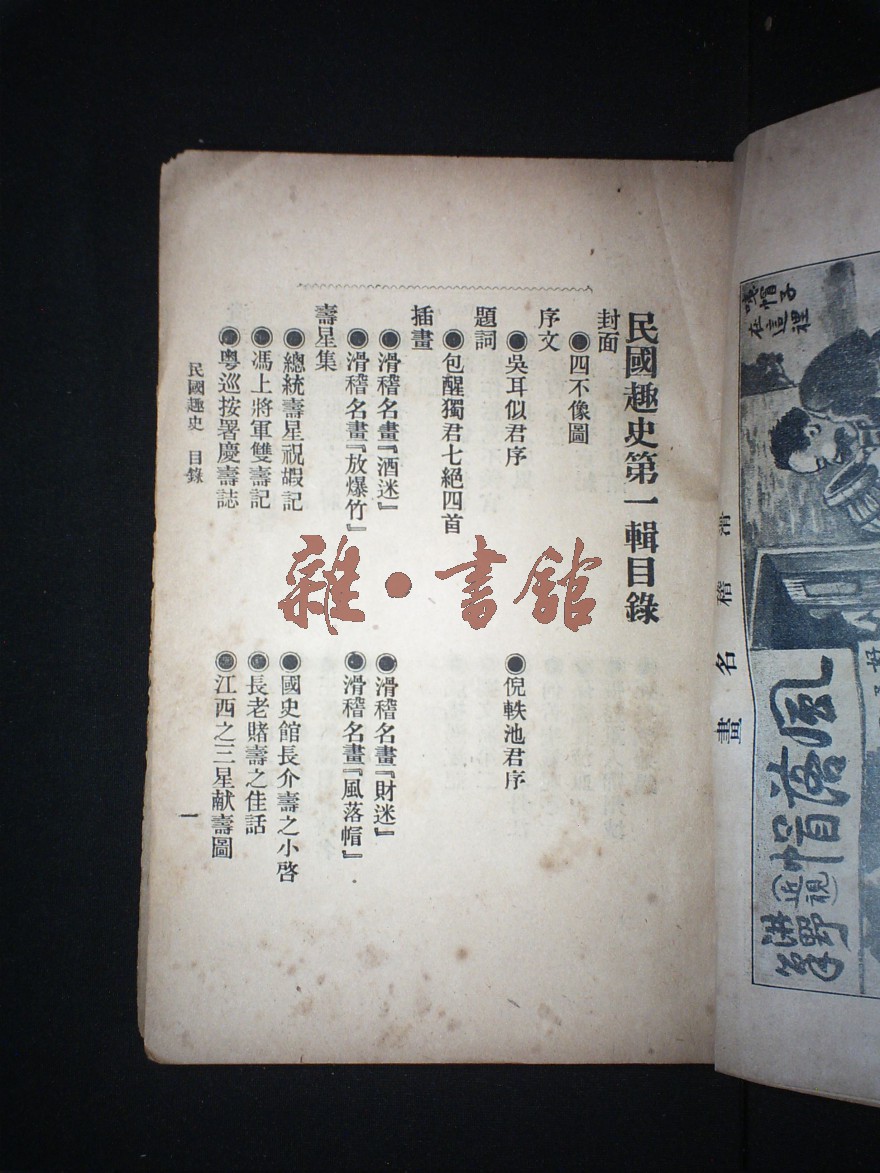 民國趣史第一輯目錄
封面
●四不像圖
序文
●吳耳似君序
●倪軼池君序
題詞
●包醒獨君七絕四首
插畫
●滑稽名畫『酒迷』
●滑稽名畫『財迷』
●滑稽名畫『放爆竹』
●滑稽名畫『風落帽』
壽星集
●總統壽星祝嘏記
●國史館長介壽之小啓
●馮上將軍雙壽記
●長老賭壽之佳話
●粵巡按署慶壽誌
●江西之三星献壽圖
民國趣史 目錄
一
雜·書館
滑稽名畫
帽子
在這裡
風落帽
近視